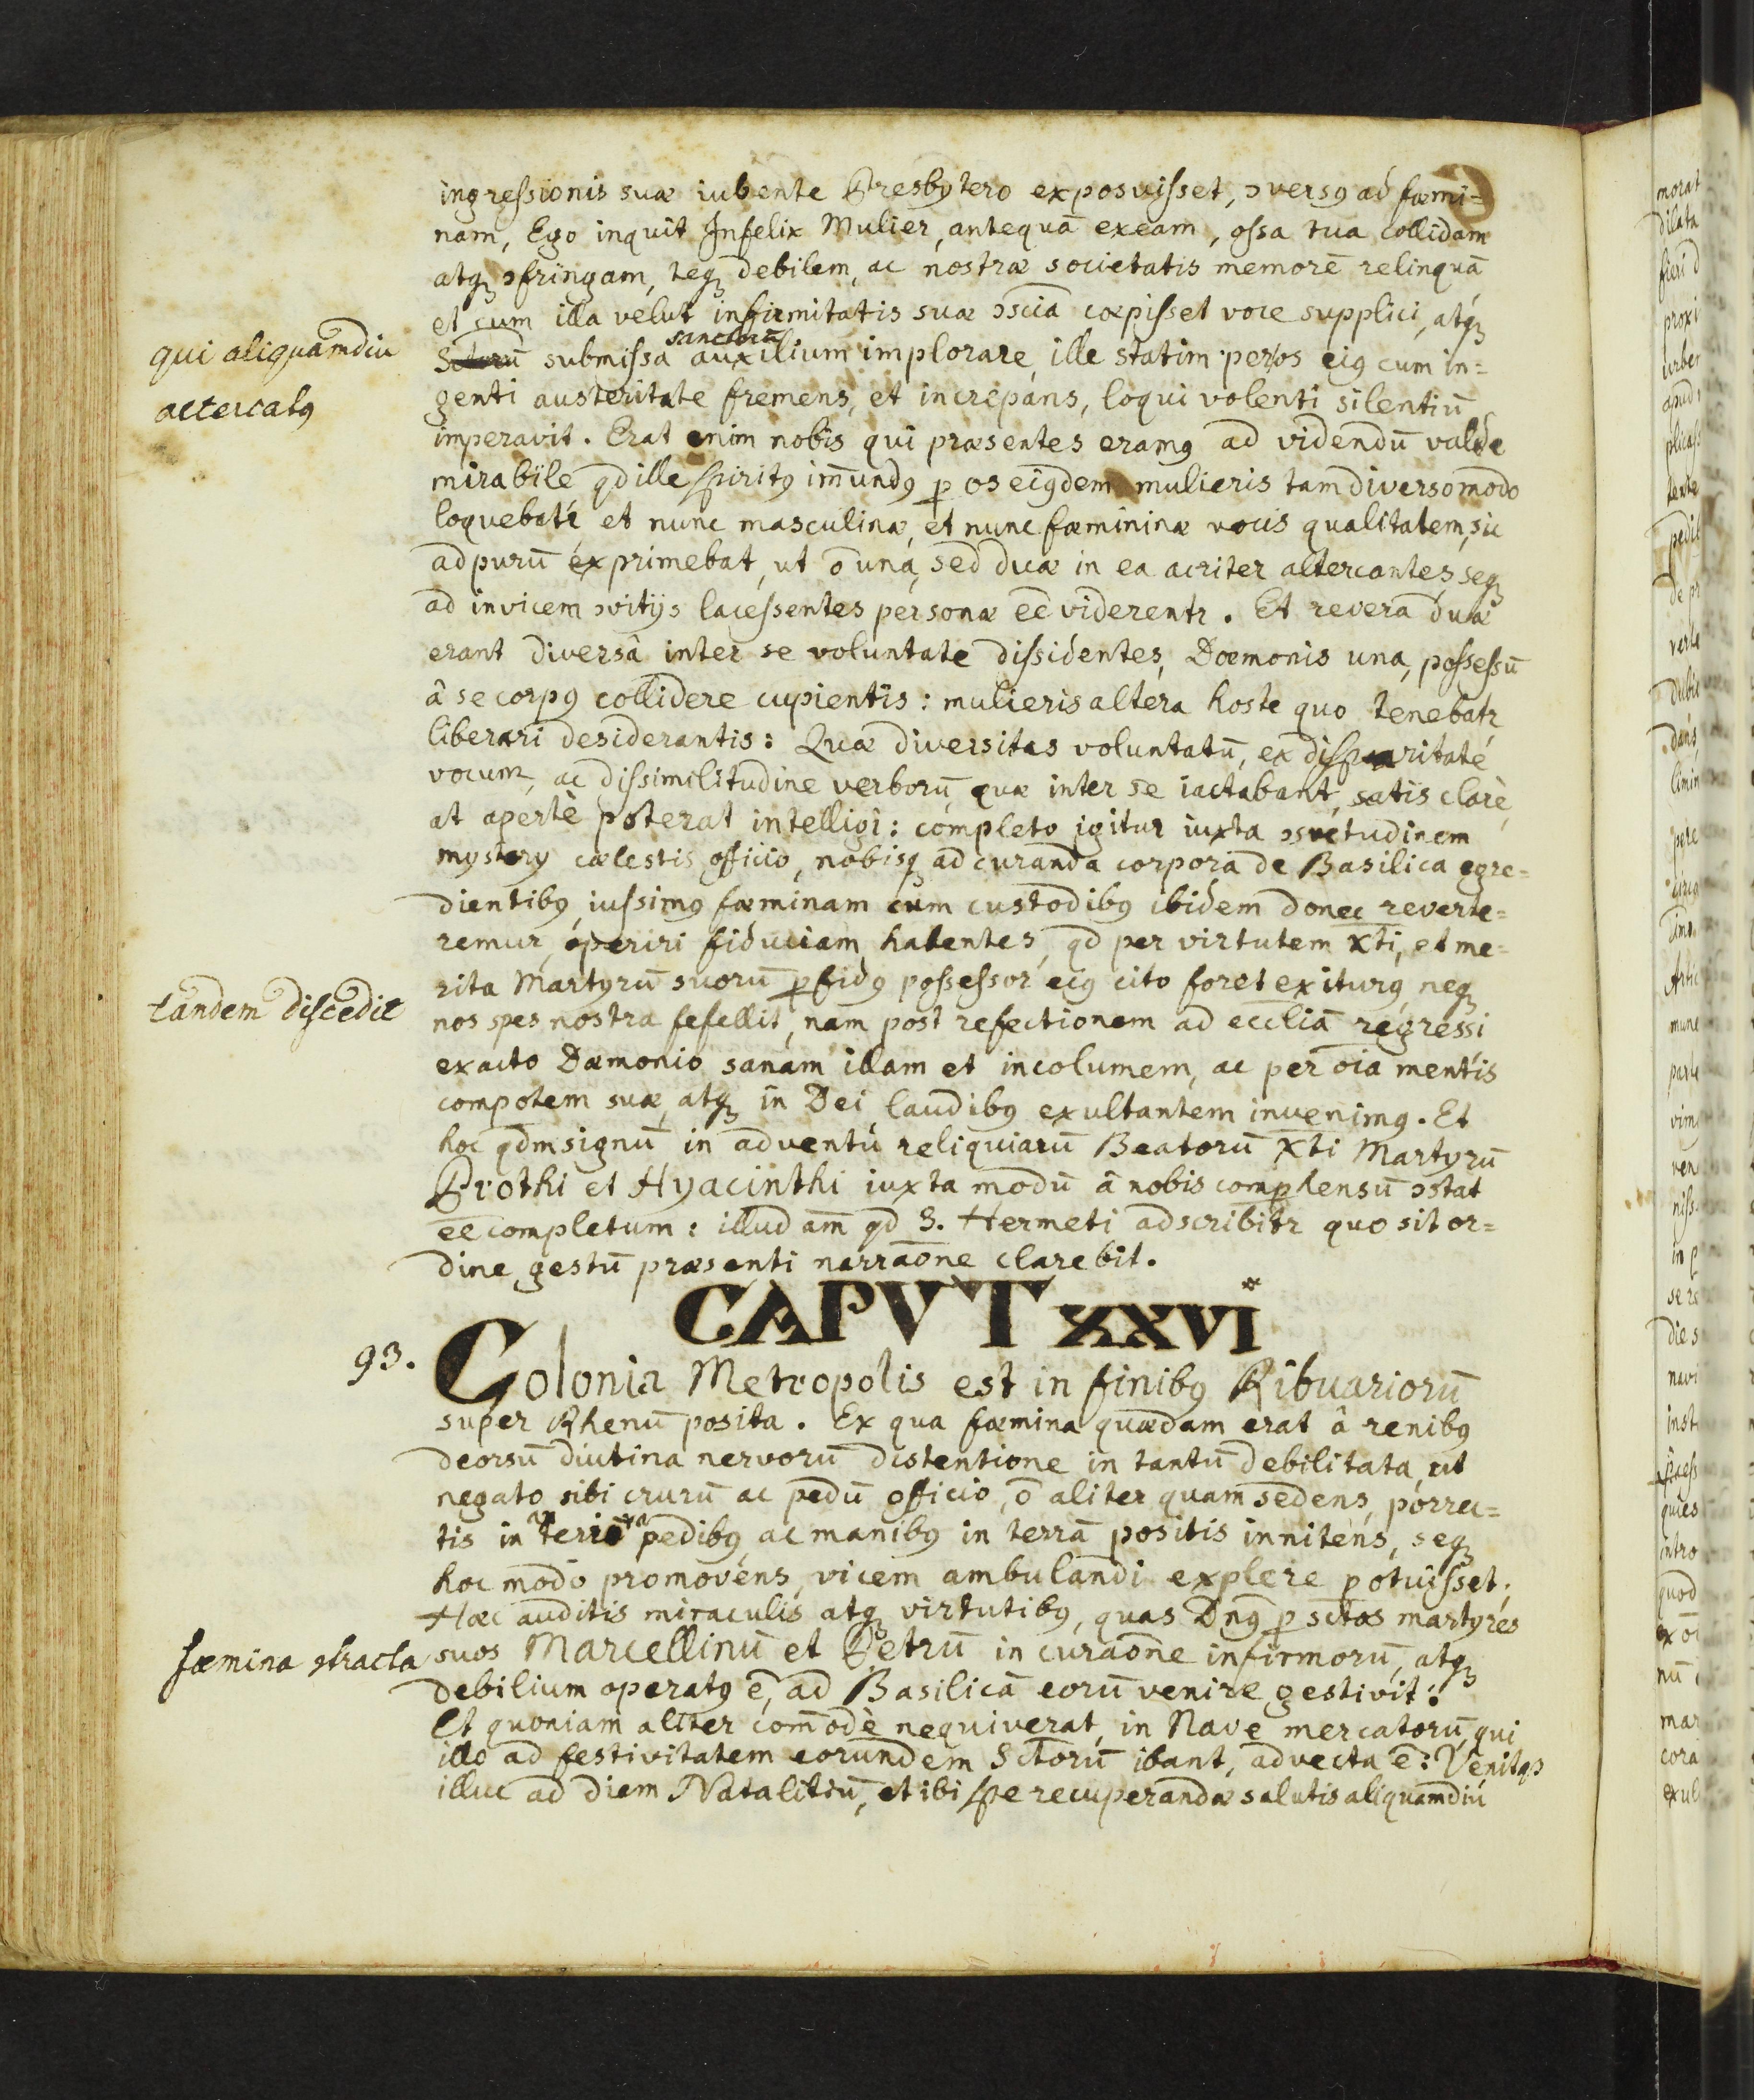 ingressionis suæ iubente Presbytero exposuisset, ɔversꝰ ad fœmi=
nam, Ego inquit Infelix Mulier, antequā exeam, ossa tua collidam
atqꝫ ɔfringam, teqꝫ debilem, ac nostræ societatis memorē relinquā
et cum illa velut infirmitatis suæ ɔscia cœpisset voce supplici, atqꝫ
sanctorū
submissa auxilium implorare, ille statim per os eiꝰ cum in=
qui aliquamdiu
altercatꝰ
genti austeritate fremens, et increpans, loqui volenti silentiū
imperavit. Erat enim nobis qui præsentes eramꝰ ad videndū valde
mirabile qd ille spiritꝰ im̄undꝰ ꝑ os eiꝰdem mulieris tam diverso modo
loquebatr et nunc masculinæ, et nunc fœmininæ vocis qualitatem, sic
ad purū exprimebat, ut ō una, sed duæ in ea acriter altercantes, seqꝫ
ad invicem ɔvitijs lacessentes personæ eē viderentr. Et revera duæ
erant diversâ inter se voluntate dissidentes, Dœmonis una, possessū
â se corpꝰ collidere cupientis: mulieris altera hoste quo tenebatr
liberari desiderantis: Quæ diversitas voluntatū, ex disparitate
vocum, ac dissimilitudine verborū, quæ inter se iactabant, satis clarè,
at apertè poterat intelligi: completo igitur iuxta ɔsuetudinem
mystery cœlestis officio, nobisqꝫ ad curanda corpora de Basilica egre=
dientibꝰ, iussimꝰ fœminam cum custodibꝰ ibidem donec reverte=
remur, operiri fiduciam habentes, qd per virtutem Xti, et me=
rita Martyrū suorū ꝑfidꝰ possessor eiꝰ cito foret exiturꝰ, neqꝫ
tandem discedit
nos spes nostra fefellit, nam post refectionem ad eccliā regressi
exacto Dæmonio sanam illam et incolumem, ac per oīa mentis
compotem suæ, atqꝫ in Dei laudibꝰ exultantem invenimꝰ. Et
hoc qdm signū in adventu reliquiarū Beatorū Xti Martyrū
Prothi et Hyacinthi iuxta modū â nobis comprhensū ɔstat
eē completum: illud am̄ qd S. Hermeti adscribitr quo sit or=
dine gestū præsenti narraōne clarebit.
CAPVT XXVI
93.
Colonia Metropolis est in finibꝰ Ribuariorū
super Rhenū posita. Ex qua fœmina quædam erat â renibꝰ
deorsū diutina nervorū distentione in tantū debilitata, ut
negato sibi crurū ac pedū officio, ō aliter quam sedens, porrec=
tis in pedibꝰ, ac manibꝰ in terrā positis innitens, seqꝫ
hoc modo promovens, vicem ambulandi explere potuisset.
Hæc auditis miraculis atqꝫ virtutibꝰ, quas Dnꝰ ꝑ sctos martyres
fœmina ɔtracta
suos Marcellinū et Petrū in curaōne infirmorū, atqꝫ
debilium operatꝰ ē, ad Basilicā eorū venire gestivit:
Et quoniam aliter com̄odè nequiverat, in Nave mercatorū, qui
illo ad festivitatem eorundem Sctorū ibant, advecta ē: Venitqꝫ
illuc ad diem Natalitiū, et ibi spe recuperandæ salutis aliquamdiu